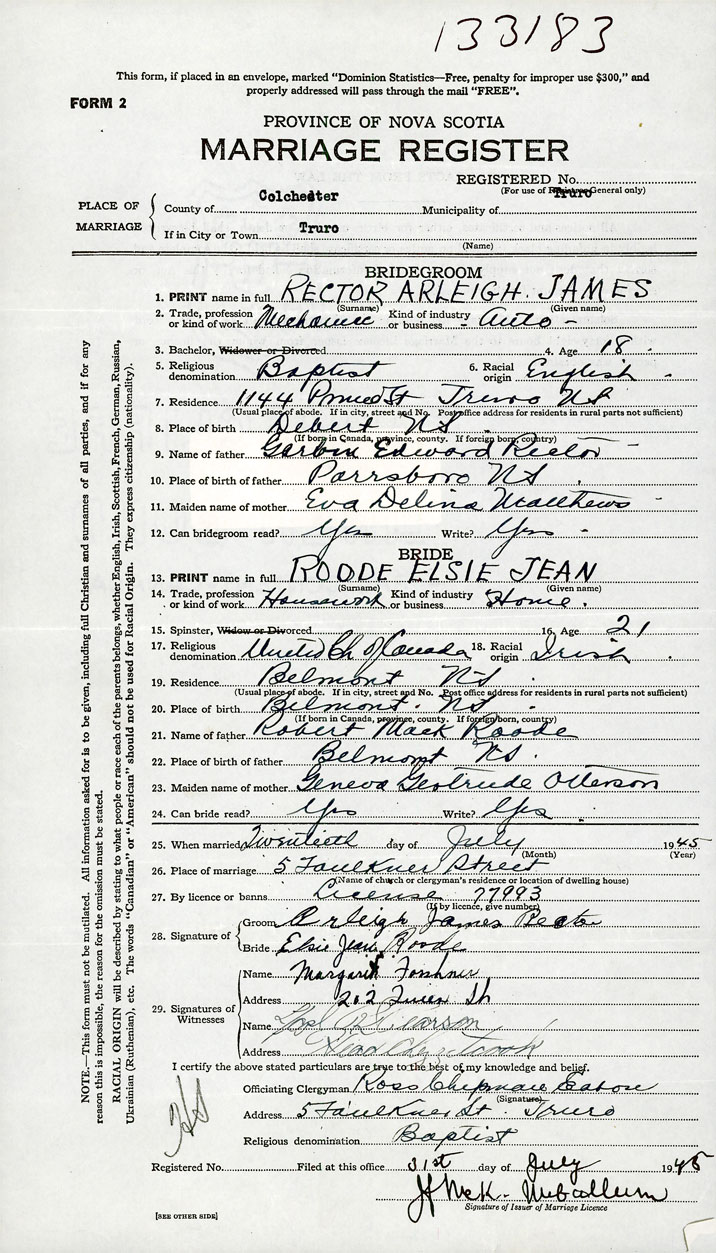 133183
This form, if placed in an envelope, marked "Dominion Statistics—Free, penalty for improper use $300," and
properly addressed will pass through the mail "FREE".
FORM 2
PROVINCE OF NOVA SCOTIA
MARRIAGE REGISTER
REGISTERED No.
(For use of Registrar General only)
PLACE OF MARRIAGE
County of Colchester Municipality of Truro
If in City or Town Truro
(Name)
BRIDEGROOM
1. PRINT name in full RECTOR ARLEIGH. JAMES
(Surname) (Given name)
2. Trade, profession or kind of work Mechanic Kind of industry or business - Auto -
3. Bachelor, Widower or Divorced 4. Age 18
5. Religious denomination Baptist 6. Racial origin English
7. Residence 1144 St Truro NS
(Usual place of abode. If in city, street and No. Post office address for residents in rural parts not sufficient)
8. Place of birth Debert NS
(If born in Canada, province, county. If foreign born, country)
9. Name of father Edward Rector
10. Place of birth of father Parrsboro NS
11. Maiden name of mother Eva Delina Matthews
12. Can bridegroom read? Yes Write? Yes
BRIDE
13. PRINT name in full ROODE ELSIE JEAN
(Surname) (Given name)
14. Trade, profession or kind of work Housework Kind of industry or business Home.
15. Spinster, Widow or Divorced 16. Age 21
17. Religious denomination United Ch of Canada 18. Racial origin Irish
19. Residence Belmont NS
(Usual place of abode. If in city, street and No. Post office address for residents in rural parts not sufficient)
20. Place of birth Belmont. NS.
(If born in Canada, province, county. If foreign born, country)
21. Name of father Robert Mack Roode
22. Place of birth of father Belmont NS.
23. Maiden name of mother Geneva Gertrude Otterson
24. Can bride read? Yes Write? Yes
25. When married Twentieth day of July 1945
(Month) (Year)
26. Place of marriage 5 Faulkner Street
(Name of church or clergyman's residence or location of dwelling house)
27. By licence or banns License 77993
(If by licence, give number)
28. Signature of Groom Arleigh James Rector
Bride Elsie Jean Roode
29. Signatures of Witnesses
Name Margaret
Address 202 St
Name Pearson
Address
I certify the above stated particulars are true to the best of my knowledge and belief.
Officiating Clergyman Ross Chipman Eaton
(Signature)
Address 5 Faulkner St. Truro
Religious denomination Baptist
Registered No. Filed at this office 31st day of July 1945
J McK. McCallum
Signature of Issuer of Marriage Licence
[SEE OTHER SIDE]
NOTE.—This form must not be mutilated. All information asked for is to be given, including full Christian and surnames of all parties, and if for any
reason this is impossible, the reason for the omission must be stated.
RACIAL ORIGIN will be described by stating to what people or race each of the parents belongs, whether English, Irish, Scottish, French, German, Russian,
Ukrainian (Ruthenian), etc. The words "Canadian" or "American" should not be used for Racial Origin. They express citizenship (nationality).